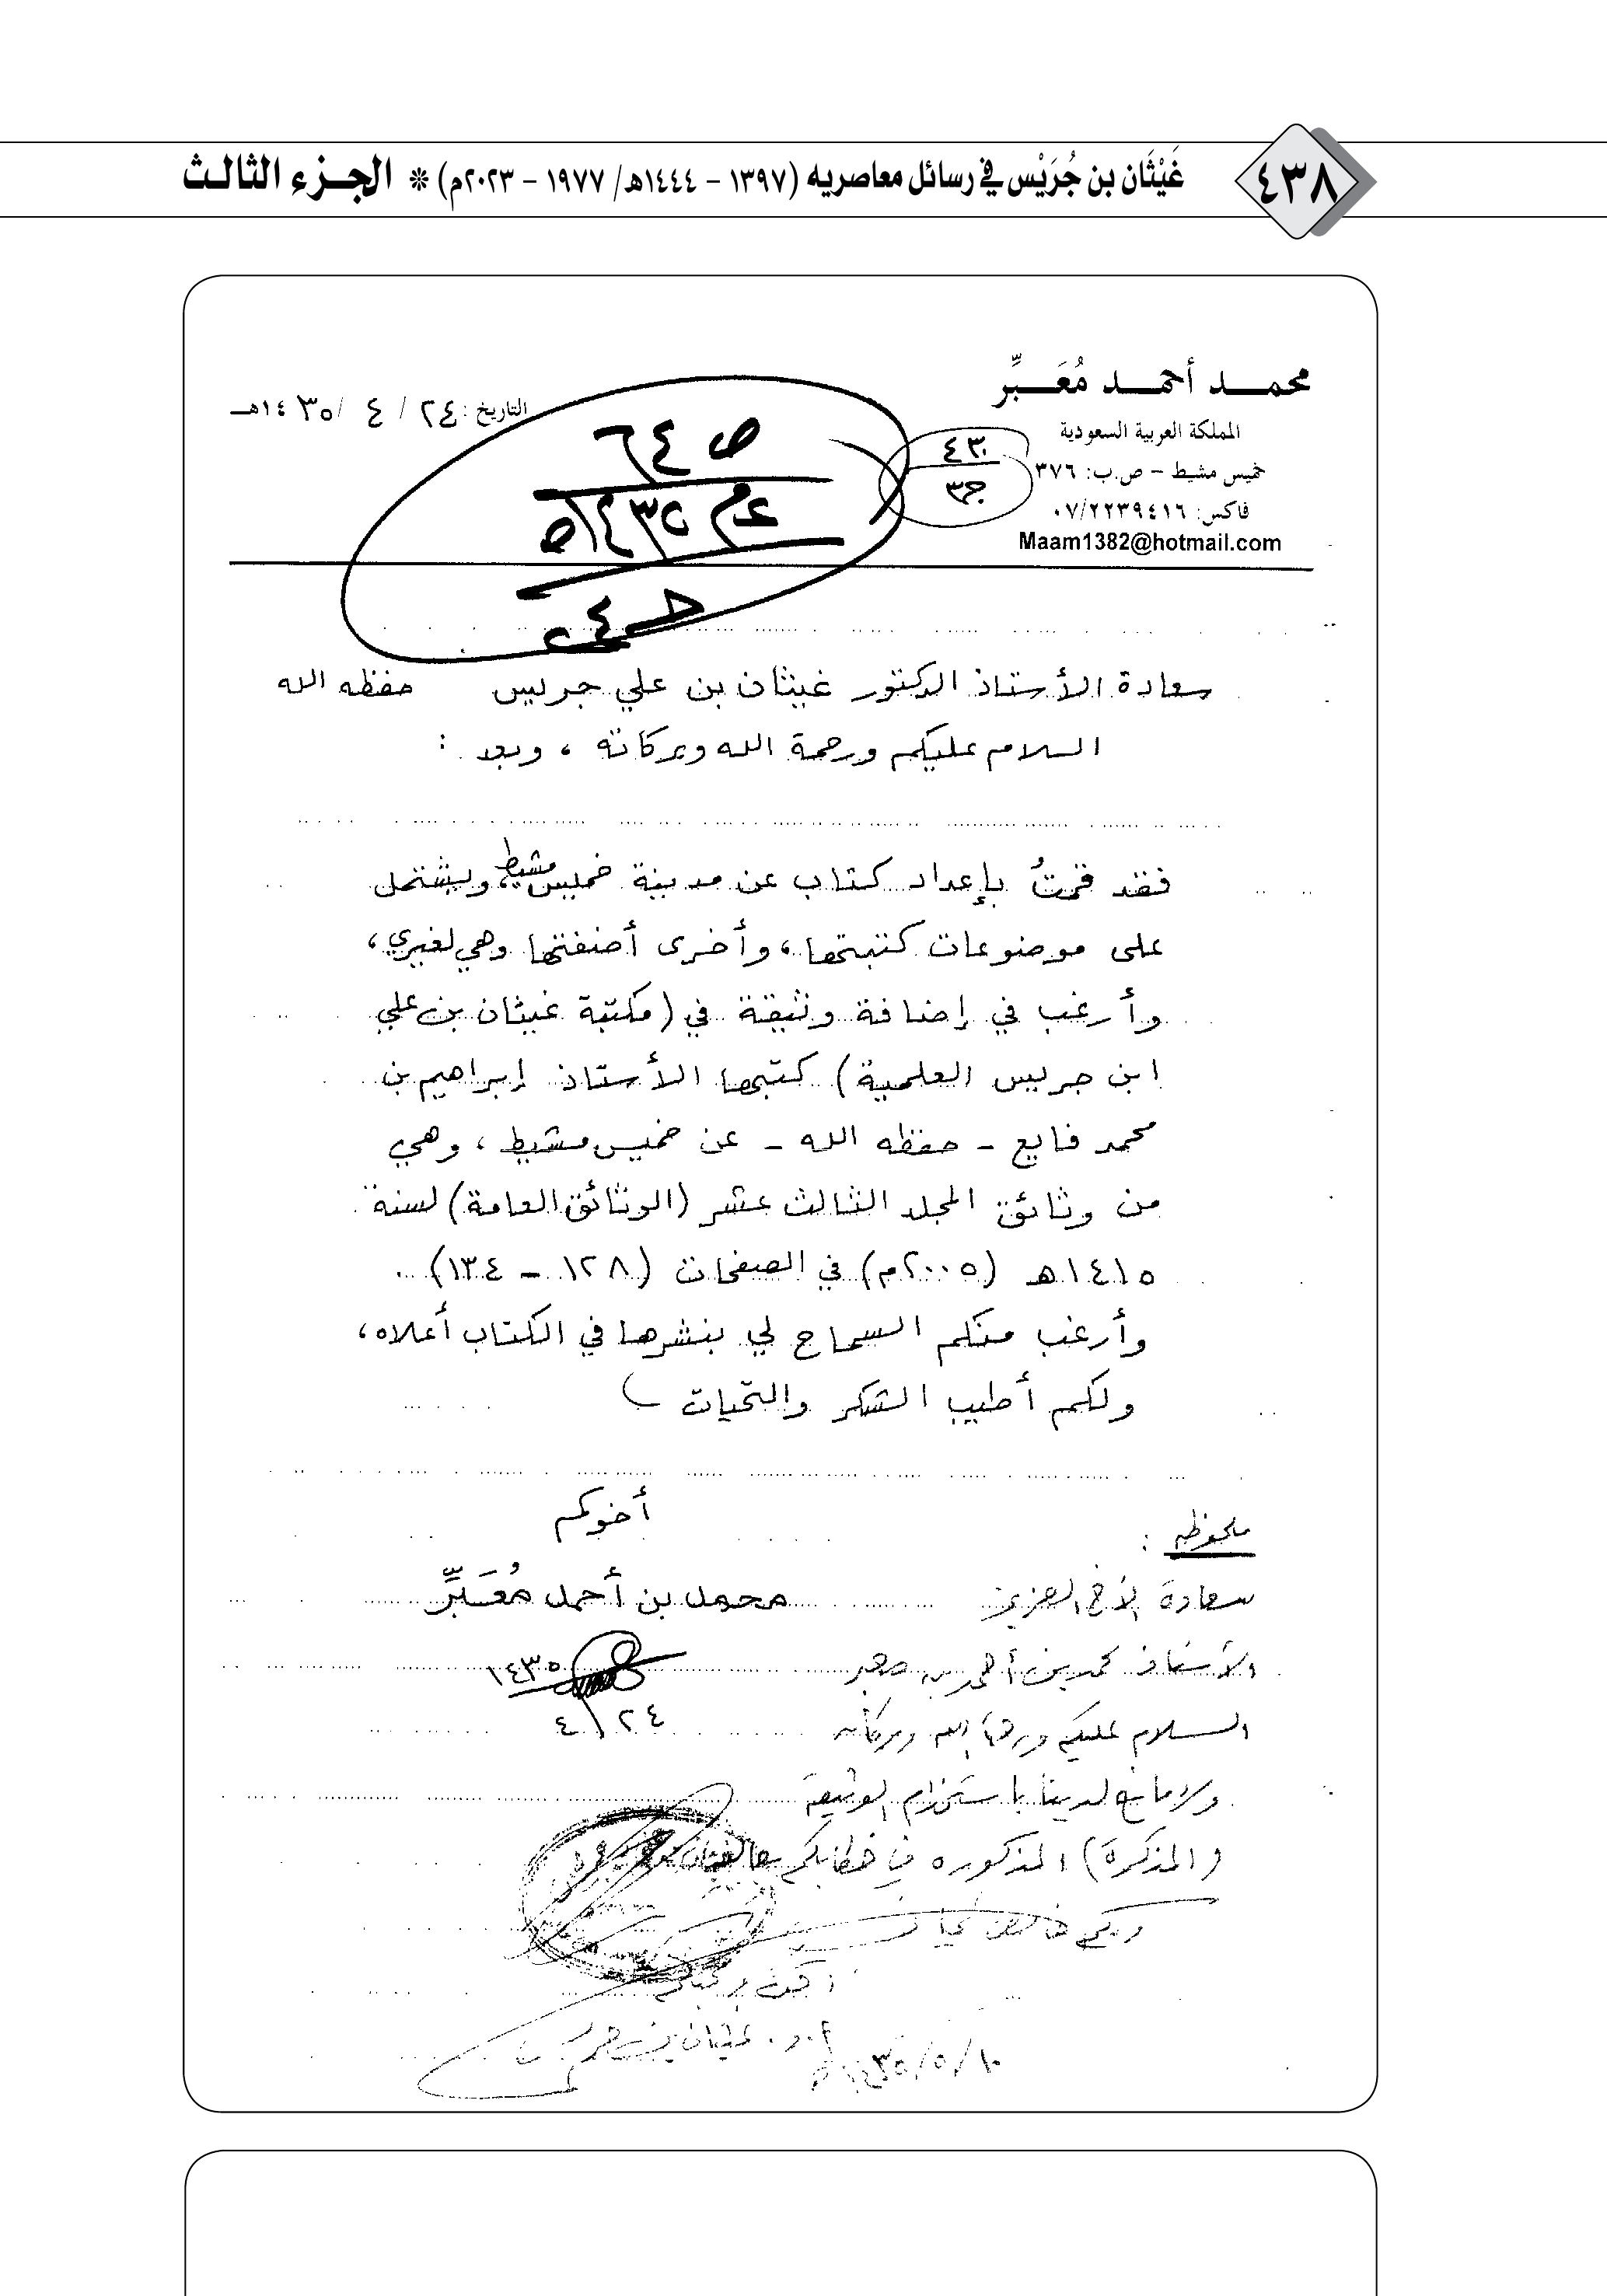 ٤٣٨
غَيْثَان بن جُرَيْس في رسائل معاصريه (١٣٩٧ – ١٤٤٤هـ/ ١٩٧٧ – ٢٠٢٣م) * الجزء الثالث
محمد أحمد مُعَبِّر
المملكة العربية السعودية
خميس مشيط – ص.ب: ٣٧٦
فاكس: ٠٧/٢٢٣٩٤١٦
Maam1382@hotmail.com
التاريخ: ٢٤ / ٤ / ١٤٣٥هـ
ص ٦٤
عام ١٤٣٥هـ
سعادة الأستاذ الدكتور غيثان بن علي جريس حفظه الله
السلام عليكم ورحمة الله وبركاته ، وبعد :
فقد قمتُ بإعداد كتاب عن مدينة خميس مشيط، ويشتمل
على موضوعات كتبتها، وأخرى أضفتها وهي لغيري،
وأرغب في إضافة وثيقة في (مكتبة غيثان بن علي
ابن جريس العلمية) كتبها الأستاذ إبراهيم بن
محمد فايع - حفظه الله - عن خميس مشيط ، وهي
من وثائق المجلد الثالث عشر (الوثائق العامة) لسنة
١٤١٥هـ (٢٠٠٥م) في الصفحات (١٢٨ - ١٣٤).
وأرغب منكم السماح لي بنشرها في الكتاب أعلاه،
ولكم أطيب الشكر والتحيات
أخوكم
محمد بن أحمد مُعَبِّر
١٤٣٥
٤/٢٤
ملحوظه :
سعادة الأخ العزيز
الأستاذ محمد بن أحمد بن معبر
السلام عليكم ورحمة الله وبركاته
ولا مانع لدينا باستخدام الوثيقة
(المذكرة) المذكوره في خطابكم
ولكم خالص تحياتي
أ.د. غيثان بن جريس
١٤٣٥/٥/١٠هـ